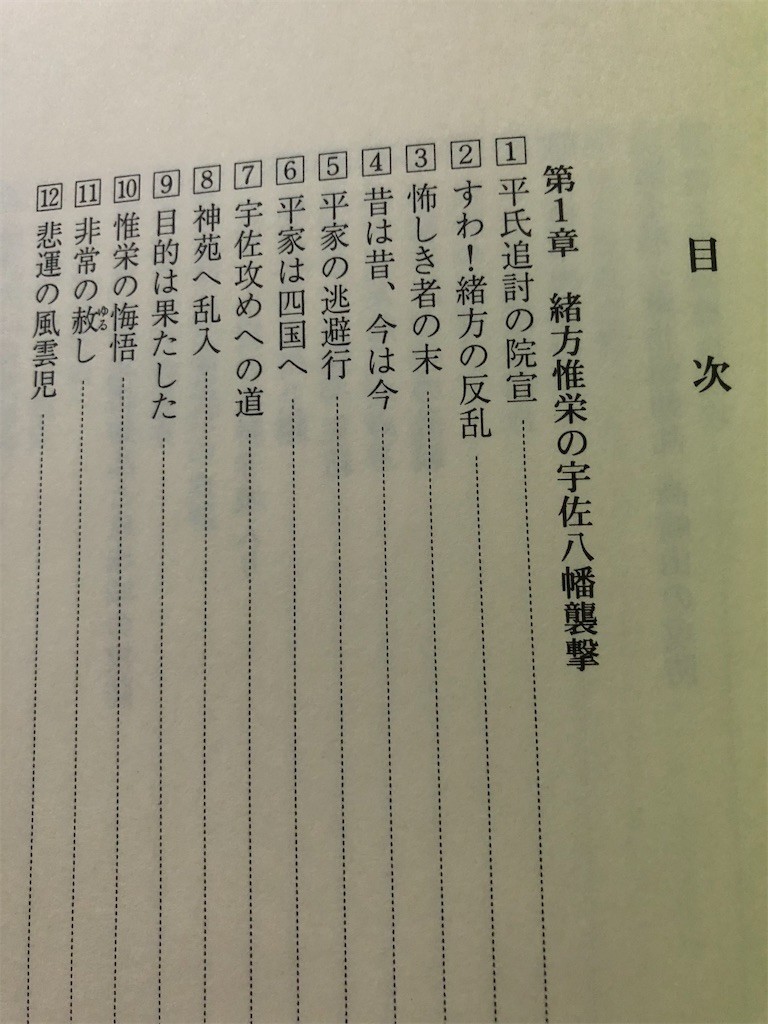 目次
第1章 緒方惟栄の宇佐八幡襲撃
1 平氏追討の院宣
2 すわ！緒方の反乱
3 怖しき者の末
4 昔は昔、今は今
5 平家の逃避行
6 平家は四国へ
7 宇佐攻めへの道
8 神苑へ乱入
9 目的は果たした
10 惟栄の悔悟
11 非常の赦し
ゆる
12 悲運の風雲児